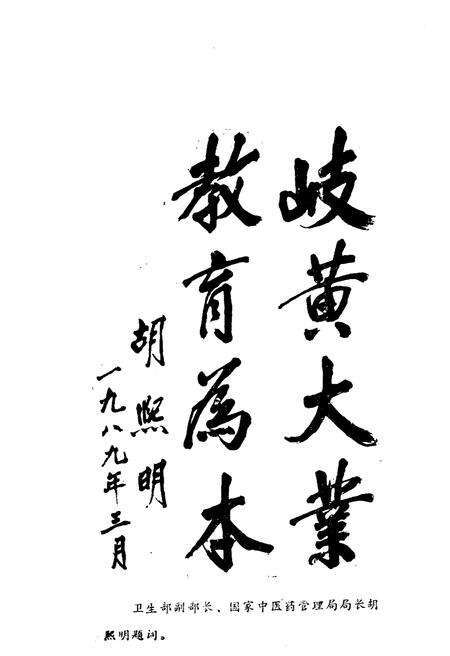 岐黄大业
教育為本
胡熙明
一九八九年三月
卫生部副部长、国家中医药管理局局长胡
熙明题词。